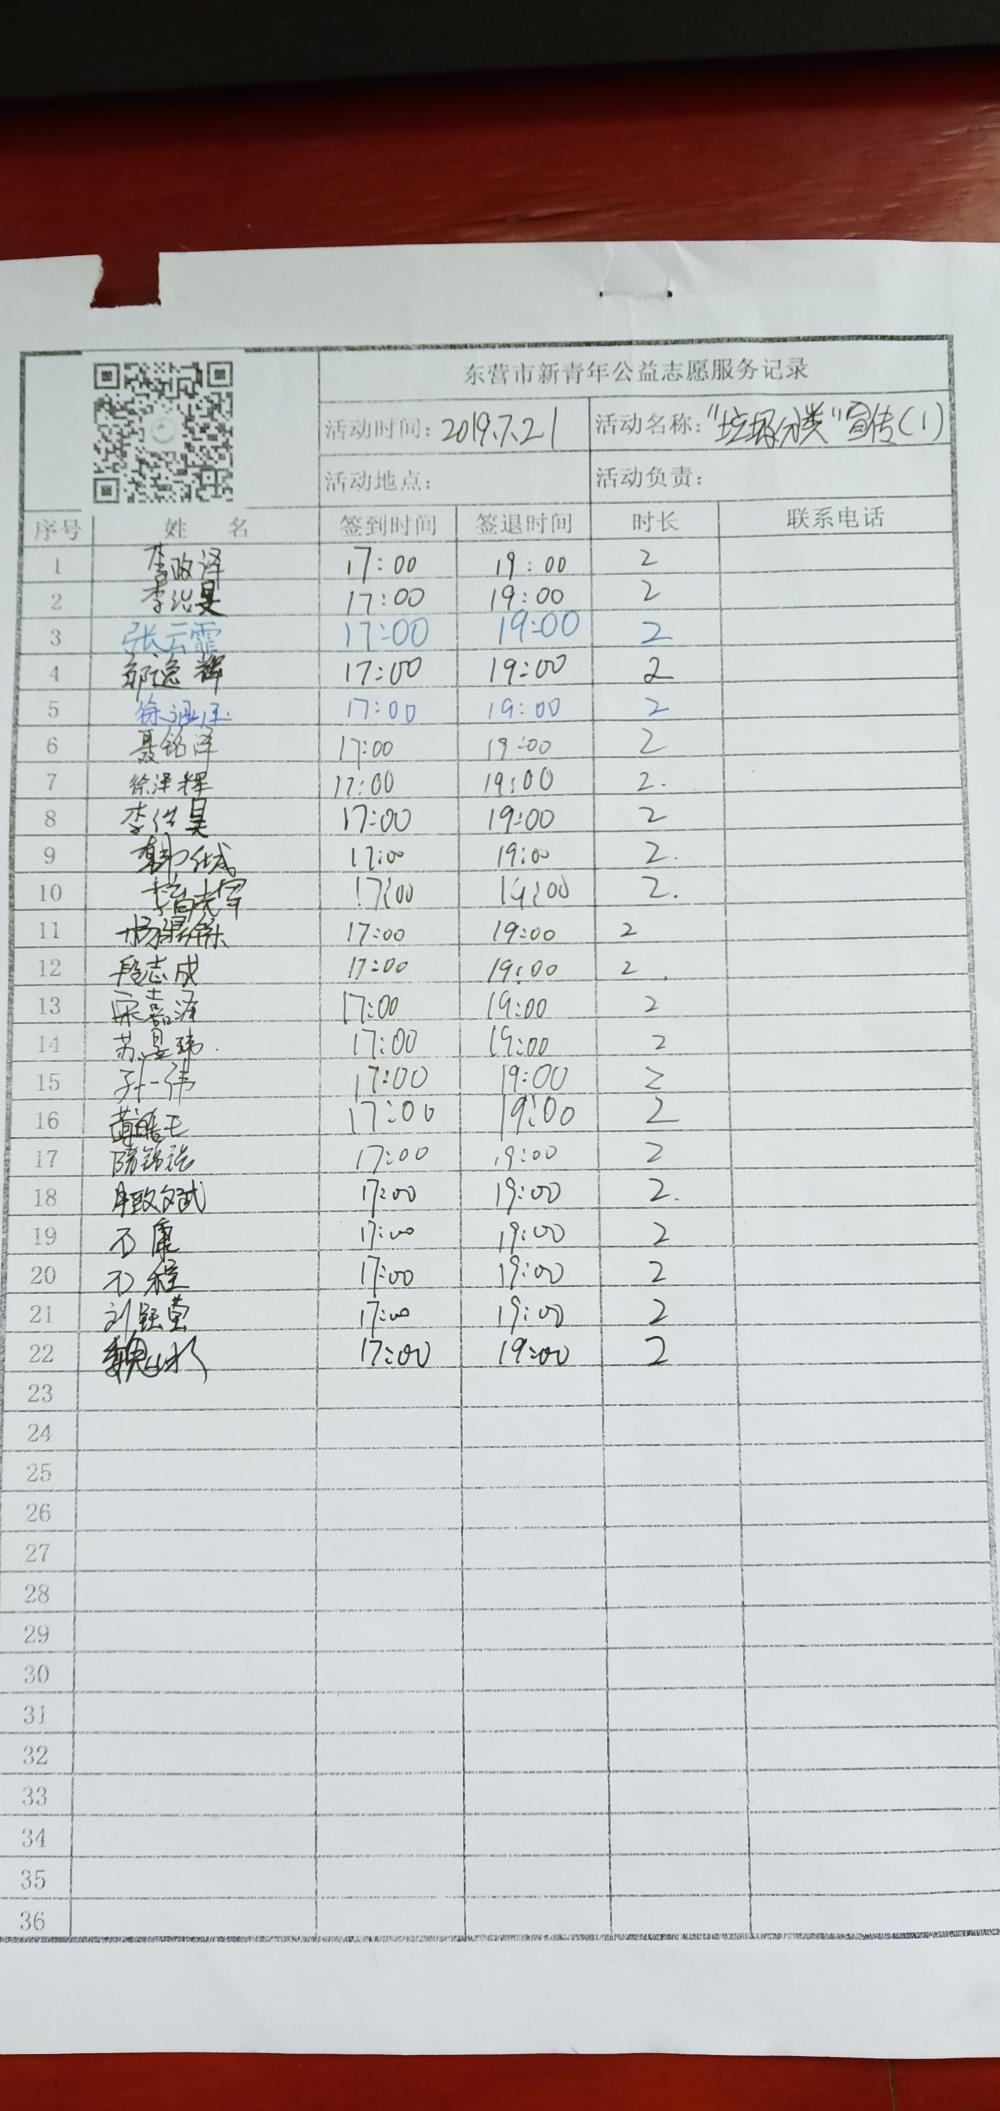 东营市新青年公益志愿服务记录
活动时间：2019.7.21 活动名称："垃圾分类"宣传(1)
活动地点： 活动负责：
序号 姓 名 签到时间 签退时间 时长 联系电话
1 李政泽 17:00 19:00 2
2 李浩昊 17:00 19:00 2
3 张云霏 17:00 19:00 2
4 郑逸辉 17:00 19:00 2
5 徐 17:00 19:00 2
6 聂铭泽 17:00 19:00 2
7 徐泽辉 17:00 19:00 2.
8 李 昊 17:00 19:00 2
9 韩 成 17:00 19:00 2.
10 17:00 19:00 2.
11 杨 17:00 19:00 2
12 段志成 17:00 19:00 2
13 宋嘉泽 17:00 19:00 2
14 苏昱玮 17:00 19:00 2
15 孙一伟 17:00 19:00 2
16 17:00 19:00 2
17 17:00 19:00 2
18 17:00 19:00 2.
19 石康 17:00 19:00 2
20 石程 17:00 19:00 2
21 刘 17:00 19:00 2
22 魏 17:00 19:00 2
23
24
25
26
27
28
29
30
31
32
33
34
35
36